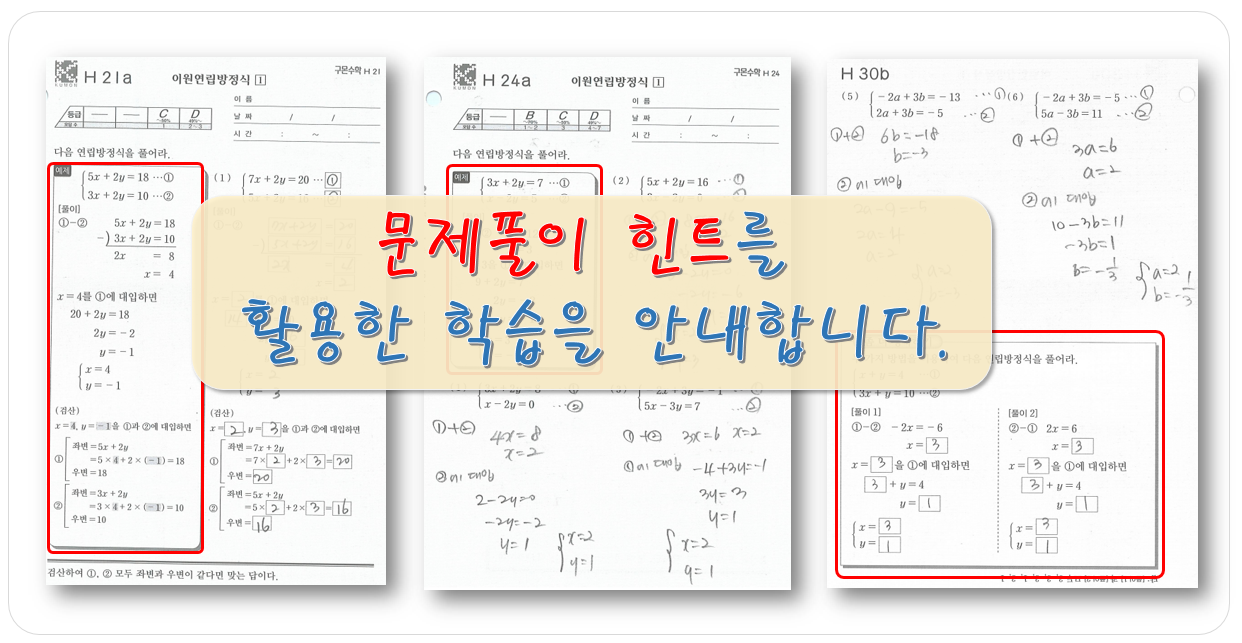 H 21a
이원연립방정식 1
구몬수학 H 21
KUMON
등급
C
D
이 름
날 짜 / /
시 간 : ~ :
다음 연립방정식을 풀어라.
예제
5x + 2y = 18 ···①
3x + 2y = 10 ···②
[풀이]
①-② 5x + 2y = 18
-) 3x + 2y = 10
2x = 8
x = 4
x = 4를 ①에 대입하면
20 + 2y = 18
2y = -2
y = -1
x = 4
y = -1
(검산)
x = 4, y = -1을 ①과 ②에 대입하면
① 좌변 = 5x + 2y
= 5 × 4 + 2 × (-1) = 18
우변 = 18
② 좌변 = 3x + 2y
= 3 × 4 + 2 × (-1) = 10
우변 = 10
(1) 7x + 2y = 20 ··· ①
(검산)
x = 2, y = 3을 ①과 ②에 대입하면
① 좌변 = 7x + 2y
= 7 × 2 + 2 × 3 = 20
우변 = 20
② 좌변 = 5x + 2y
= 5 × 2 + 2 × 3 = 16
우변 = 16
검산하여 ①, ② 모두 좌변과 우변이 같다면 맞는 답이다.
H 24a
이원연립방정식 1
구몬수학 H 24
KUMON
등급
B
C
D
이 름
날 짜 / /
시 간 : ~ :
다음 연립방정식을 풀어라.
예제
3x + 2y = 7 ···①
(2) 5x + 2y = 16 ···①
문제풀이 힌트를
활용한 학습을 안내합니다.
x - 2y = 0 ···②
①+②
4x = 8
x = 2
②에 대입
2 - 2y = 0
-2y = -2
y = 1
x = 2
y = 1
5x - 3y = 7 ···②
①+② 3x = 6 x = 2
①에 대입 -4 + 3y = -1
3y = 3
y = 1
x = 2
y = 1
H 30b
(5) -2a + 3b = -13 ···①
2a + 3b = -5 ···②
①+② 6b = -18
b = -3
②에 대입
(6) -2a + 3b = -5 ···①
5a - 3b = 11 ···②
①+②
3a = 6
a = 2
②에 대입
10 - 3b = 11
-3b = 1
b = -1/3
a = 2
b = -1/3
연립방정식을 풀어라.
3x + y = 10 ···②
[풀이 1]
①-② -2x = -6
x = 3
x = 3 을 ①에 대입하면
3 + y = 4
y = 1
x = 3
y = 1
[풀이 2]
②-① 2x = 6
x = 3
x = 3 을 ①에 대입하면
3 + y = 4
y = 1
x = 3
y = 1